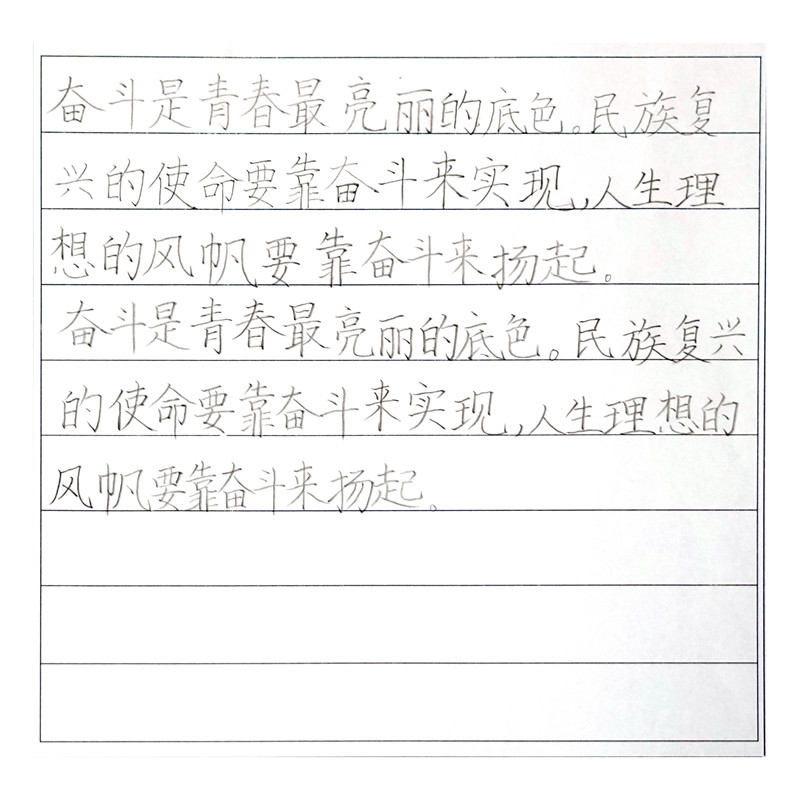 奋斗是青春最亮丽的底色。民族复
兴的使命要靠奋斗来实现,人生理
想的风帆要靠奋斗来扬起。
奋斗是青春最亮丽的底色。民族复兴
的使命要靠奋斗来实现,人生理想的
风帆要靠奋斗来扬起。